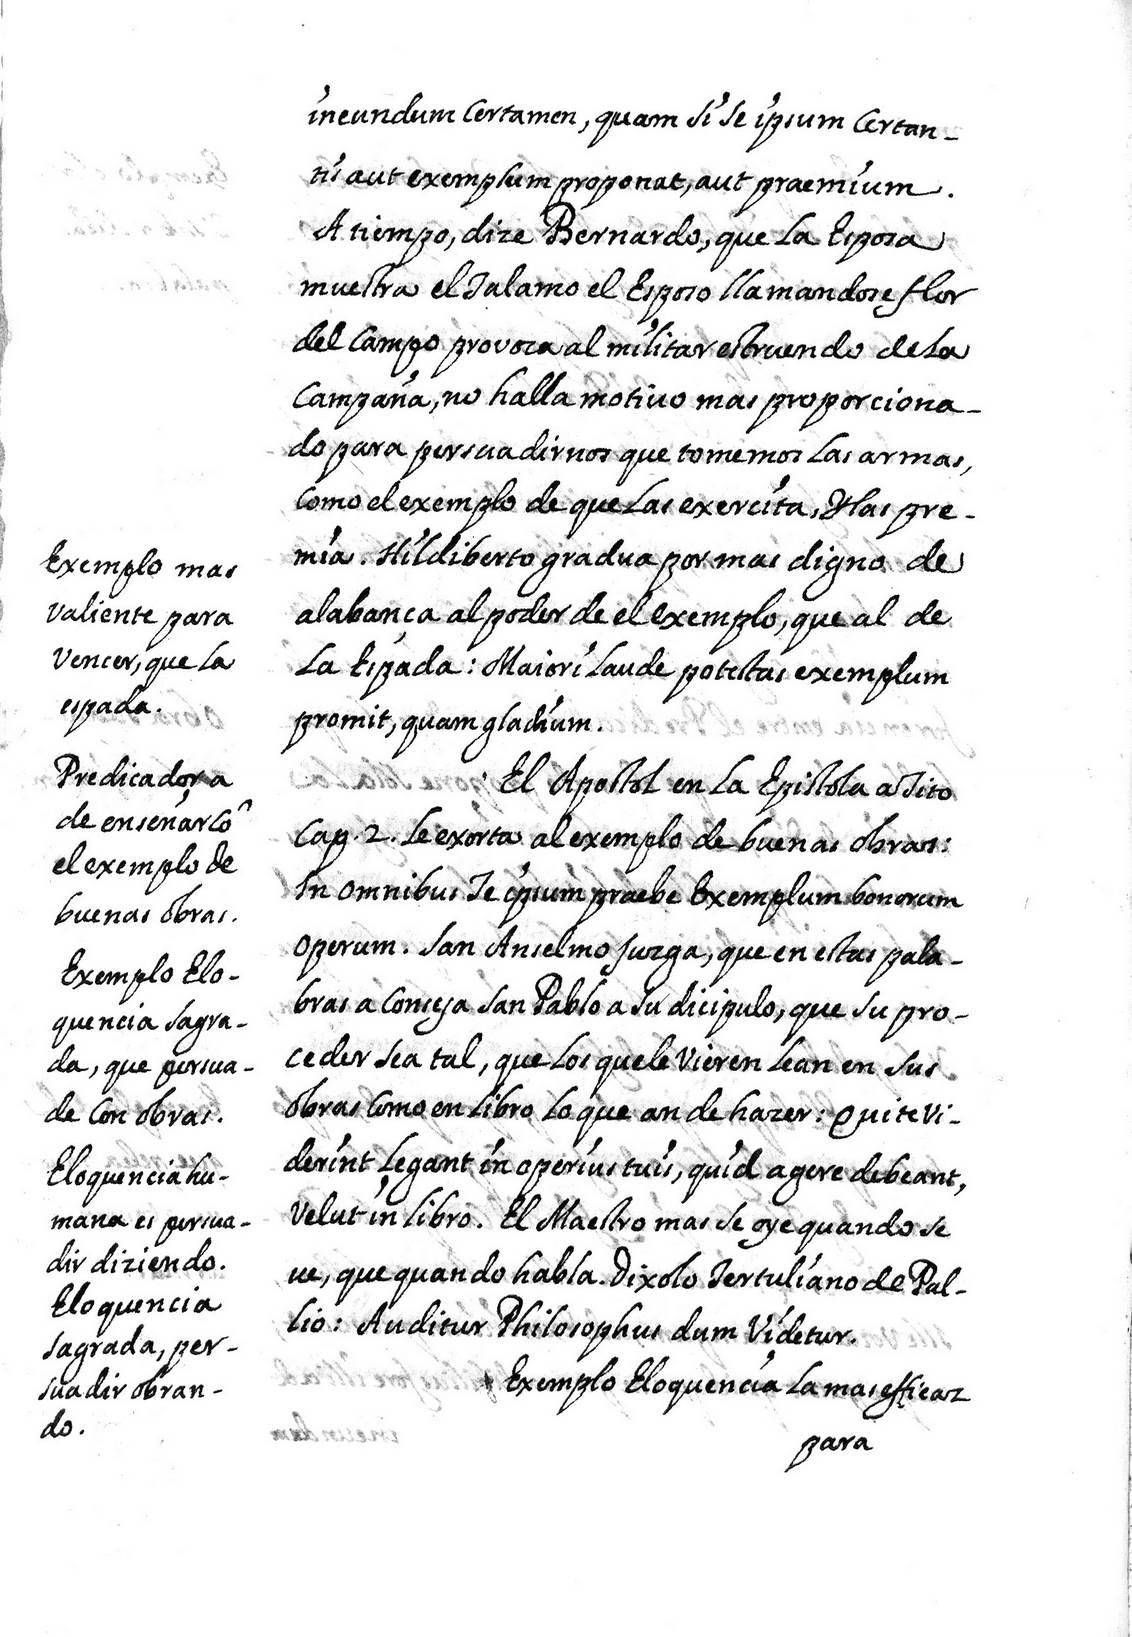 ineundum Certamen, quam si se ipsum Certan-
tis aut exemplum proponat, aut praemium.
A tiempo, dize Bernardo, que La Esposa
muestra el Talamo el Esposo llamandose flor
del Campo provoca al militar estruendo de La
Campaña, no halla motivo mas proporciona-
do para persuadirnos que tomemos Las armas,
Como el exemplo de que Las exercita, Y las pre-
mia. Hildiberto gradua por mas digno de
alabança al poder de el exemplo, que al de
La Espada: Maiori Laude potestas exemplum
promit, quam gladium.
El Apostol en La Epistola a Tito
Cap. 2. Le exorta al exemplo de buenas obras:
In omnibus Te ipsum praebe Exemplum bonorum
operum. San Anselmo juzga, que en estas pala-
bras aconseja San Pablo a su dicipulo, que su pro-
ceder sea tal, que Los que le Vieren Lean en sus
obras Como en Libro Lo que an de hazer: Qui te Vi-
derint Legant in operius tuis, quid agere debeant,
Velut in Libro. El Maestro mas se oye quando se
ve, que quando habla. Dixolo Tertuliano de Pal-
lio: Auditur Philosophus dum Videtur.
Exemplo Eloquencia La mas efficaz
para
Exemplo mas
Valiente para
Vencer, que La
espada.
Predicador a
de enseñar Cô
el exemplo de
buenas obras.
Exemplo Elo-
quencia sagra-
da, que persua-
de Con obras.
Eloquencia hu-
mana es persua-
dir diziendo.
Eloquencia
sagrada, per-
suadir obran-
do.